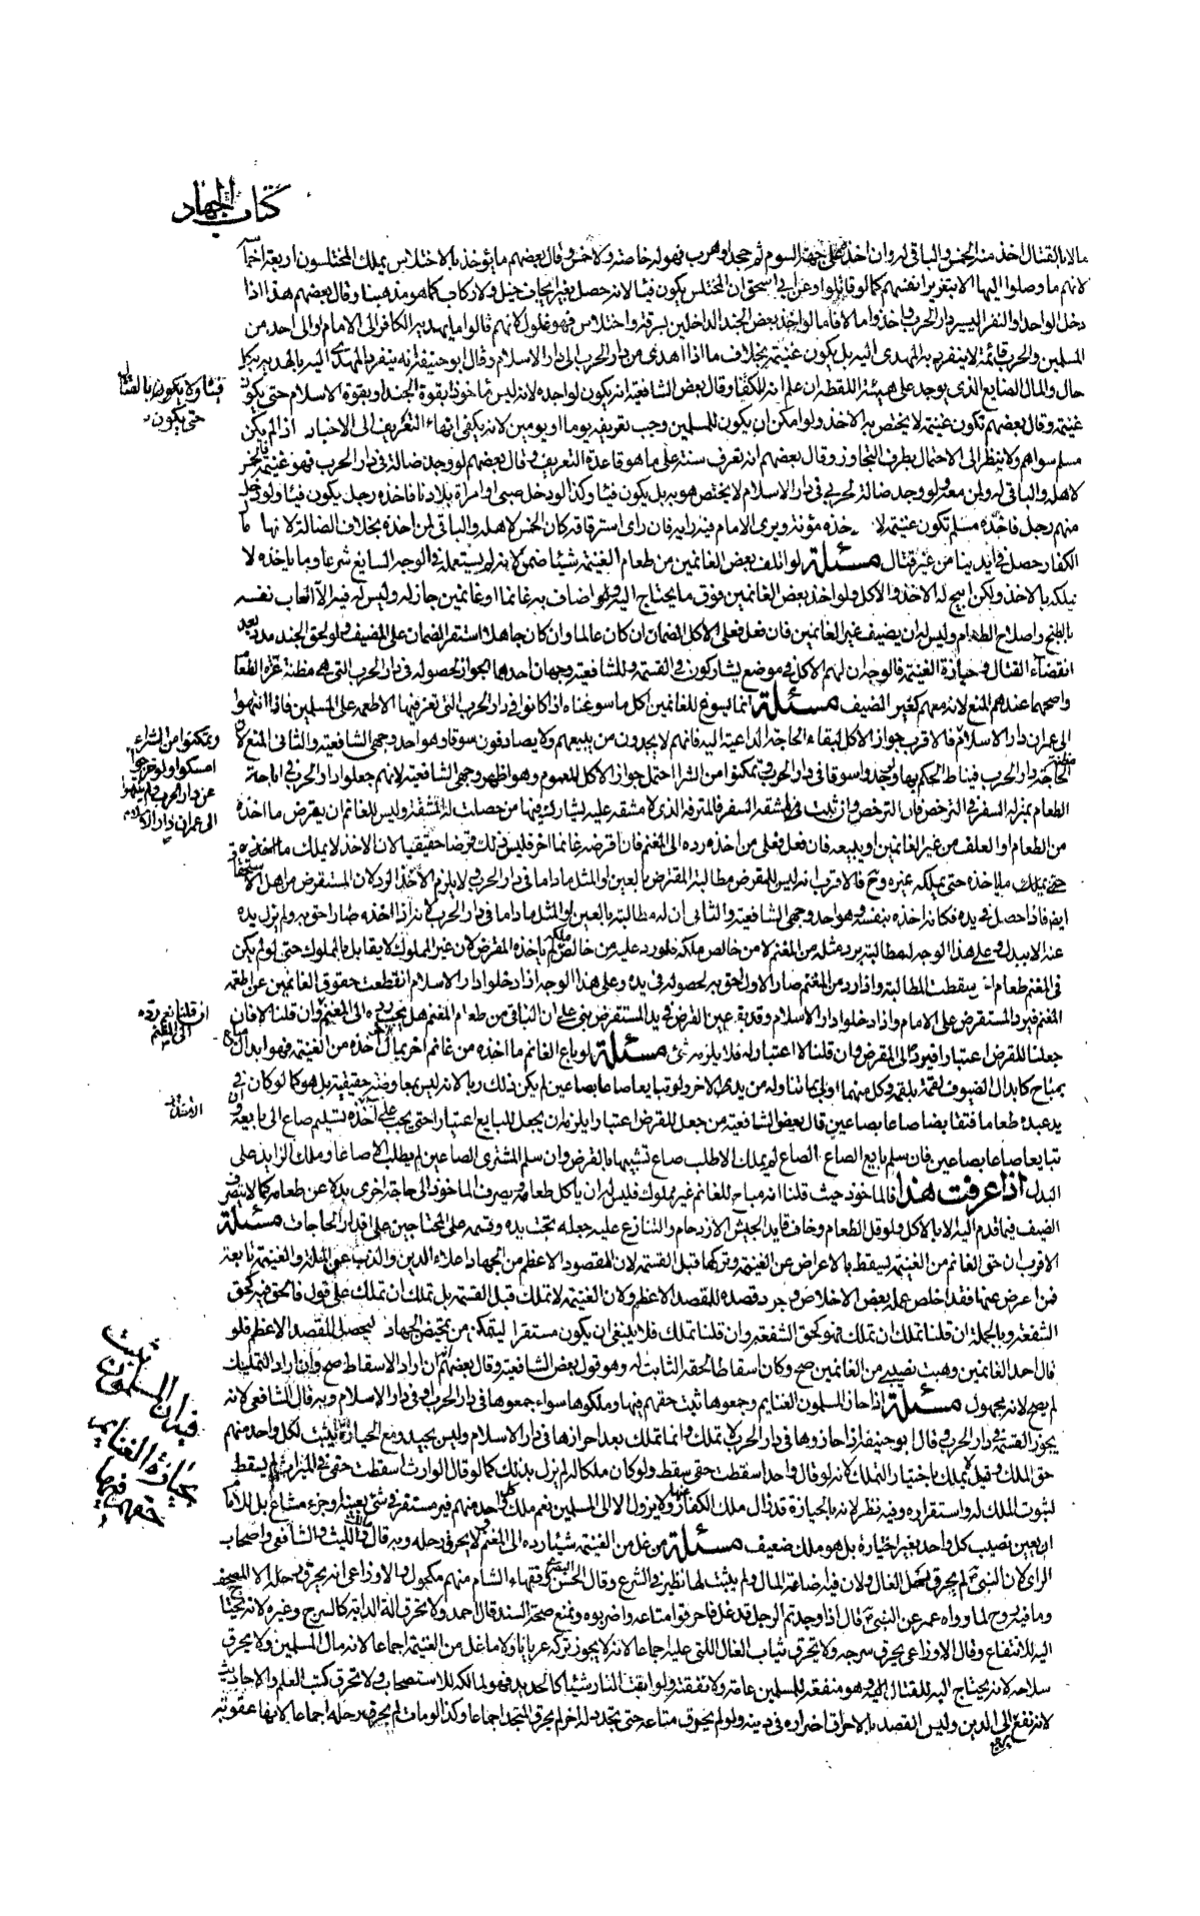 كتاب الجهاد
مالا بالقتال اخذ منه الخمس والباقي له وان اخذ على جهة السوم ثم جحد او هرب فهو له خاصة ولا خمس وقال بعضهم ما يؤخذ بالاختلاس يملكه المختلسون اربعة اخماسه
لانهم ما وصلوا اليها الا بتغرير انفسهم كما لو قاتلوا وعن ابي اسحق ان المختلس يكون فيئا لانه حصل بغير ايجاف خيل ولا ركاب كما هو مذهبنا وقال بعضهم هذا اذا
دخل الواحد والنفر اليسير دار الحرب واخذوا مالا فاما لو اخذ بعض الجند الداخلين بسرقة واختلاس فهو غلول لانهم قالوا ما يهديه الكافر الى الامام والى احد من
المسلمين والحرب قائمة لا ينفرد به المهدى اليه بل يكون غنيمة بخلاف ما اذا اهدى من دار الحرب الى دار الاسلام وقال ابو حنيفة انه ينفرد المهدى اليه بالهدية بكل
حال والمال الضايع الذي يوجد على هيئة اللقطة ان علم انه للكفار قال بعض الشافعية انه يكون لواجده لانه ليس ماخوذا بقوة الجند او بقوة الاسلام حتى يكون
فيئا ولا يكون بالقتال
حتى يكون
غنيمة وقال بعضهم تكون غنيمة لا يختص به الاخذ ولو امكن ان يكون للمسلمين وجب تعريفه يوما او يومين لانه يكفي انهاء التعريف الى الاخبار اذا لم يكن
مسلم سواهم ولا ينظر الى الاحتمال بطرف التجار وقال بعضهم انه تعرف سنة على ما هو قاعدة التعريف وقال بعضهم لو وجد ضالة في دار الحرب فهو غنيمة فالخمس
لاهله والباقي له ولمن معه ولو وجد ضالة لحربي في دار الاسلام لا يختص هو به بل يكون فيئا وكذا لو دخل صبي او امراة بلادنا فاخذه رجل يكون فيئا ولو دخل
منهم رجل فاخذه مسلم تكون غنيمة لا خذه مؤنة ويرى الامام فيه رايه فان راى استرقاقه كان الخمس لاهله والباقي لمن اخذه بخلاف الضالة لانها مال
الكفار حصل في ايدينا من غير قتال مسئلة لو اتلف بعض الغانمين من طعام الغنيمة شيئا ضمن لانه لم يستعمله في الوجه السايغ شرعا وما ياخذه لا
يملكه بالاخذ ولكن ابيح له الاخذ والاكل ولو اخذ بعض الغانمين فوق ما يحتاج اليه ولو اضاف به غانما او غانمين جاز له وليس له فيه الا اتعاب نفسه
بالطبخ واصلاح الطعام وليس له ان يضيف غير الغانمين فان فعل فعلى الاكل الضمان ان كان عالما وان كان جاهلا استقر الضمان على المضيف ولو لحق الجند مدد بعد
انقضاء القتال وحيازة الغنيمة فالوجه ان لهم الاكل في موضع يشاركون في القسمة وللشافعية وجهان احدهما الجواز لحصوله في دار الحرب التي هي مظنة عزة الطعام
واصحهما عندهم المنع لانه معهم كغير المضيف مسئلة انما يسوغ للغانمين اكل ما سوغناه اذا كانوا في دار الحرب التي تعز فيها الاطعمة على المسلمين فاذا انتهوا
الى عمران دار الاسلام فالاقرب جواز الاكل لبقاء الحاجة الداعية اليه فانهم لا يجدون من يبيعهم ولا يصادفون سوقا وهو احد وجهي الشافعية والثاني المنع لان
مظنة الحاجة دار الحرب فيناط الحكم بها ولو وجدوا سوقا في دار الحرب وتمكنوا من الشرا احتمل جواز الاكل للعموم وهو اظهر وجهي الشافعية لانهم جعلوا دار الحرب في اباحة
وتمكنوا من الشراء
امسكوا ولو خرجوا
عن دار الحرب ولم ينتهوا
الى عمران دار الاسلام
الطعام بمنزلة السفر في الترخص فان الترخص وان ثبت في مشقة السفر فالمترفه الذي لا مشقة عليه يشارك فيها من حصلت له المشقة وليس للغانم ان يقرض ما اخذه
من الطعام او العلف من غير الغانمين او يبيعه فان فعل فعلى من اخذه رده الى المغنم فان اقرضه غانما اخر فليس ذلك قرضا حقيقيا لان الاخذ لا يملك ما اخذه
حتى يملك ما ياخذه حتى يملكه غيره وح فالاقرب انه ليس للمقرض مطالبة المقترض بالعين او المثل ما داما في دار الحرب ولا يلزم الاخذ الرد لان المستقرض من اهل الاستحقاق
ايضا فاذا حصل في يده فكانه اخذه بنفسه وهو احد وجهي الشافعية والثاني ان له مطالبته بالعين او المثل ما داما في دار الحرب لانه اذا اخذه صار احق به ولم تزل يده
عنه الا ببدل وعلى هذا الوجه له مطالبته برد مثله من المغنم لا من خالص ملكه فلو رد عليه من خالص ملكه لم ياخذه المقرض لان غير المملوك لا يقابل بالمملوك حتى لو لم يكن
في المغنم طعام اخر سقطت المطالبة واذا رد من المغنم صار الاول احق به لحصوله في يده وعلى هذا الوجه اذا دخلوا دار الاسلام انقطعت حقوق الغانمين عن اطعمة
المغنم فيرد المستقرض على الامام واذا دخلوا دار الاسلام وقد بقي عين القرض في يد المستقرض بني على ان الباقي من طعام المغنم هل يجب رده الى المغنم وان قلنا لا فان
ان قلنا نعم رده
الى المغنم
جعلنا للقرض اعتبارا فيرده الى المقرض وان قلنا لا اعتبار له فلا يلزمه شئ مسئلة لو باع الغانم ما اخذه من غانم اخر بمال اخذه من الغنيمة فهو ابدال مباح
بمباح كابدال الضيوف لقمة بلقمة وكل منهما اولى بما تناوله من يد الاخر ولو تبايعا صاعا بصاعين لم يكن ذلك ربا لانه ليس بمعاوضة حقيقية بل هو كما لو كان في
يد عبده طعاما فتقابضا صاعا بصاعين قال بعض الشافعية من جعل للقرض اعتبارا يلزمه ان يجعل للبايع اعتبارا حتى يجب على اخذه تسليم صاع الى بايعه وان
تبايعا صاعا بصاعين فان سلم بايع الصاع الصاع لم يملك الا طلب صاع تشبيها بالقرض وان سلم المشتري الصاعين لم يطلب الا صاعا وملك الزايد على
البدل اذا عرفت هذا فالماخوذ حيث قلنا انه مباح للغانم غير مملوك فليس له ان ياكل طعامه ويصرف الماخوذ الى حاجة اخرى بدلا عن طعامه كما لا يتصرف
الضيف فيما قدم اليه الا بالاكل ولو قل الطعام وخاف قايد الجيش الازدحام والتنازع عليه جعله تحت يده وقسمه على المحتاجين على اقدار الحاجات مسئلة
الاقرب ان حق الغانم من الغنيمة يسقط بالاعراض عن الغنيمة وتركها قبل القسمة لان المقصود الاعظم من الجهاد اعلاء الدين والذب عن الملة والغنيمة تابعة
فمن اعرض عنها فقد اخلص عمله بعض الاخلاص وجرد قصده للمقصد الاعظم ولان الغنيمة لا تملك قبل القسمة بل تملك ان تملك على قول فالحق فيه كحق
الشفعة وبالجملة ان قلنا تملك ان تملك فهو كحق الشفعة وان قلنا تملك فلا ينبغي ان يكون مستقرا ليتمكن من تمحيض الجهاد ليحصل المقصد الاعظم فلو
قال احد الغانمين وهبت نصيبي من الغانمين صح وكان اسقاطا لحقه الثابت له وهو قول بعض الشافعية وقال بعضهم ان اراد الاسقاط صح وان اراد التمليك
لم يصح لانه مجهول مسئلة اذا حاز المسلمون الغنايم وجمعوها ثبت حقهم فيها وملكوها سواء جمعوها في دار الحرب او في دار الاسلام وبه قال الشافعي لانه
فبان المسلمون
بحيازة الغنايم
حقهم فيها
يجوز القسمة في دار الحرب وقال ابو حنيفة اذا حازوها في دار الحرب لا تملك وانما تملك بعد احرازها في دار الاسلام وليس بجيد ومع الحيازة يثبت لكل واحد منهم
حق الملك وقيل لا يملك الا باختيار التملك لانه لو قال واحد اسقطت حقي سقط ولو كان ملكا له لم يزل بذلك كما لو قال الوارث اسقطت حقي في الميراث لم يسقط
لثبوت الملك له واستقراره وفيه نظر لانه بالحيازة قد زال ملك الكفار عنها ولا يزول الا الى المسلمين نعم ملك كل واحد منهم غير مستقر في شئ بعينه او جزء مشاع بل للامام
ان يعين نصيب كل واحد بغير اختياره بل هو ملك ضعيف مسئلة من غل من الغنيمة شيئا رده الى المغنم ولا يحرق رحله وبه قال مالك والليث والشافعي واصحاب
الراي لان النبي لم يحرق رحل الغال ولان فيه اضاعة المال ولم يثبت لها نظير في الشرع وقال الحسن البصري وفقهاء الشام منهم مكحول والاوزاعي انه يحرق رحله الا المصحف
وما فيه روح لما رواه عمر عن النبي قال اذا وجدتم الرجل قد غل فاحرقوا متاعه واضربوه ونمنع صحة السند قال احمد ولا تحرق الة الدابة كالسرج وغيره لانه يحتاج
اليه للانتفاع وقال الاوزاعي يحرق سرجه ولا تحرق ثياب الغال التي عليه اجماعا لانه لا يجوز تركه عريانا ولا ما غل من الغنيمة اجماعا لانه مال المسلمين ولا يحرق
سلاحه لانه يحتاج اليه للقتال وهو منفعة للمسلمين عامة ولا نفقته ولو ابقت النار شيئا كالحديد فهو لمالكه للاستصحاب ولا تحرق كتب العلم والاحاديث
لانه نفع يرجع الى الدين وليس القصد بالاحراق اضراره في دينه ولو لم يحرق متاعه حتى تجدد له اخر لم يحرق المتجدد اجماعا وكذا لو مات لم يحرق رحله اجماعا لانها عقوبة